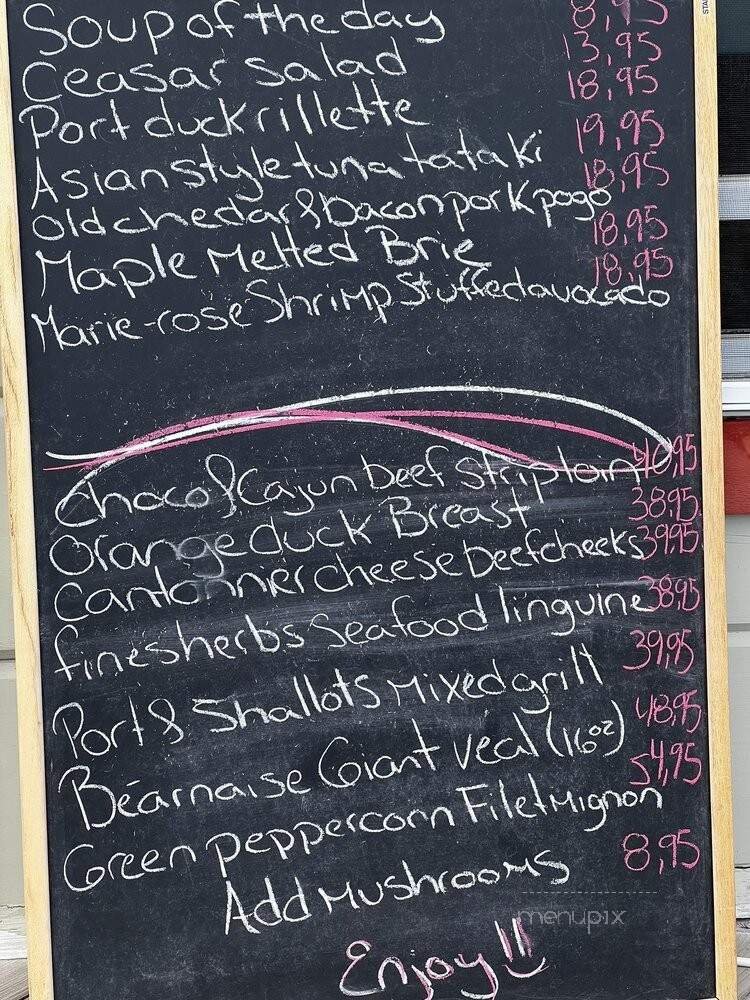 Soup of the day 8,95
Ceasar salad 13,95
Port duck rillette 18,95
Asian style tuna tataki 19,95
Old chedar & bacon pork pogo 18,95
Maple Melted Brie 18,95
Marie-rose Shrimp Stuffed avocado 18,95
Choco & Cajun beef striploin 40,95
Orange duck Breast 38,95
Cantonnier cheese beef cheeks 39,95
fines herbs seafood linguine 38,95
Port & Shallots Mixed grill 39,95
Béarnaise Giant veal (16oz) 48,95
Green peppercorn Filet Mignon 54,95
Add Mushrooms 8,95
menupix
Enjoy!!